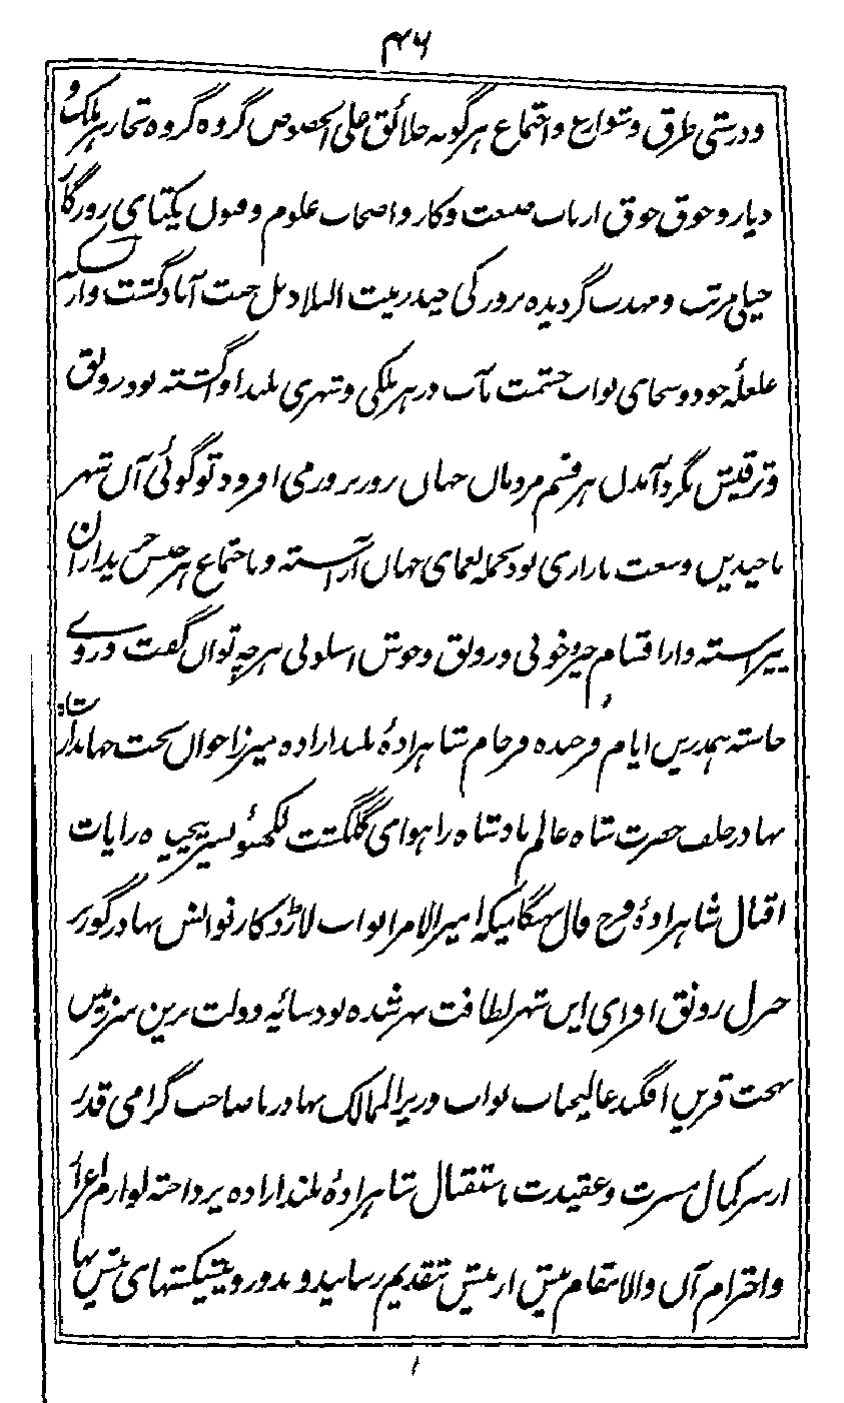 ۴۶
و درستی طرق و شوارع و اجتماع هرگونه خلائق علی الخصوص گروه گروه تجار هر ملک و
دیار و جوق جوق ارباب صنعت و کار و اصحاب علوم و فنون یکتای روزگار
خیلی مرتب و مهذب گردیده در زور کی چند زینت البلاد بل جنت آباد گشت و از بسکه
غلغلهٔ جود و سخای نواب حشمت مآب در هر ملکی و شهری بلند آوا گشته بود رونق
و ترقیش بگرد آمدن هر قسم مردمان جهان روز بروز می افزود تو گوئی آن شهر
با چندین وسعت بازاری بود بجمله نعمای جهان آراسته و باجتماع هر جنس خریداران
پیراسته و از اقسام خیر و خوبی و رونق و خوش اسلوبی هر چه توان گفت در وے
خاسته همدرین ایام فرخنده فرجام شاهزادهٔ بلند اراده میرزا جوان بخت جهاندار شاه
بهادر خلف حضرت شاه عالم بادشاه را هوای گلگشت لکهنؤ بسر پیچیده رایات
اقبال شاهزادهٔ فرخ فال هنگامیکه امیر الامرا نواب لارڈ کارنوالس بهادر گورنر
جنرل رونق افزای این شهر لطافت بهر شده بود سایه دولت برین سرزمین
بهجت قرین افگند عالیجناب نواب وزیر الممالک بهادر با صاحب گرامی قدر
از سر کمال مسرت و عقیدت باستقبال شاهزادهٔ بلند اراده پرداخته لوازم اعزاز
و احترام آن والا مقام بیش از بیش بتقدیم رسانید و بدو رو پیشکشهای بیش بها
۱